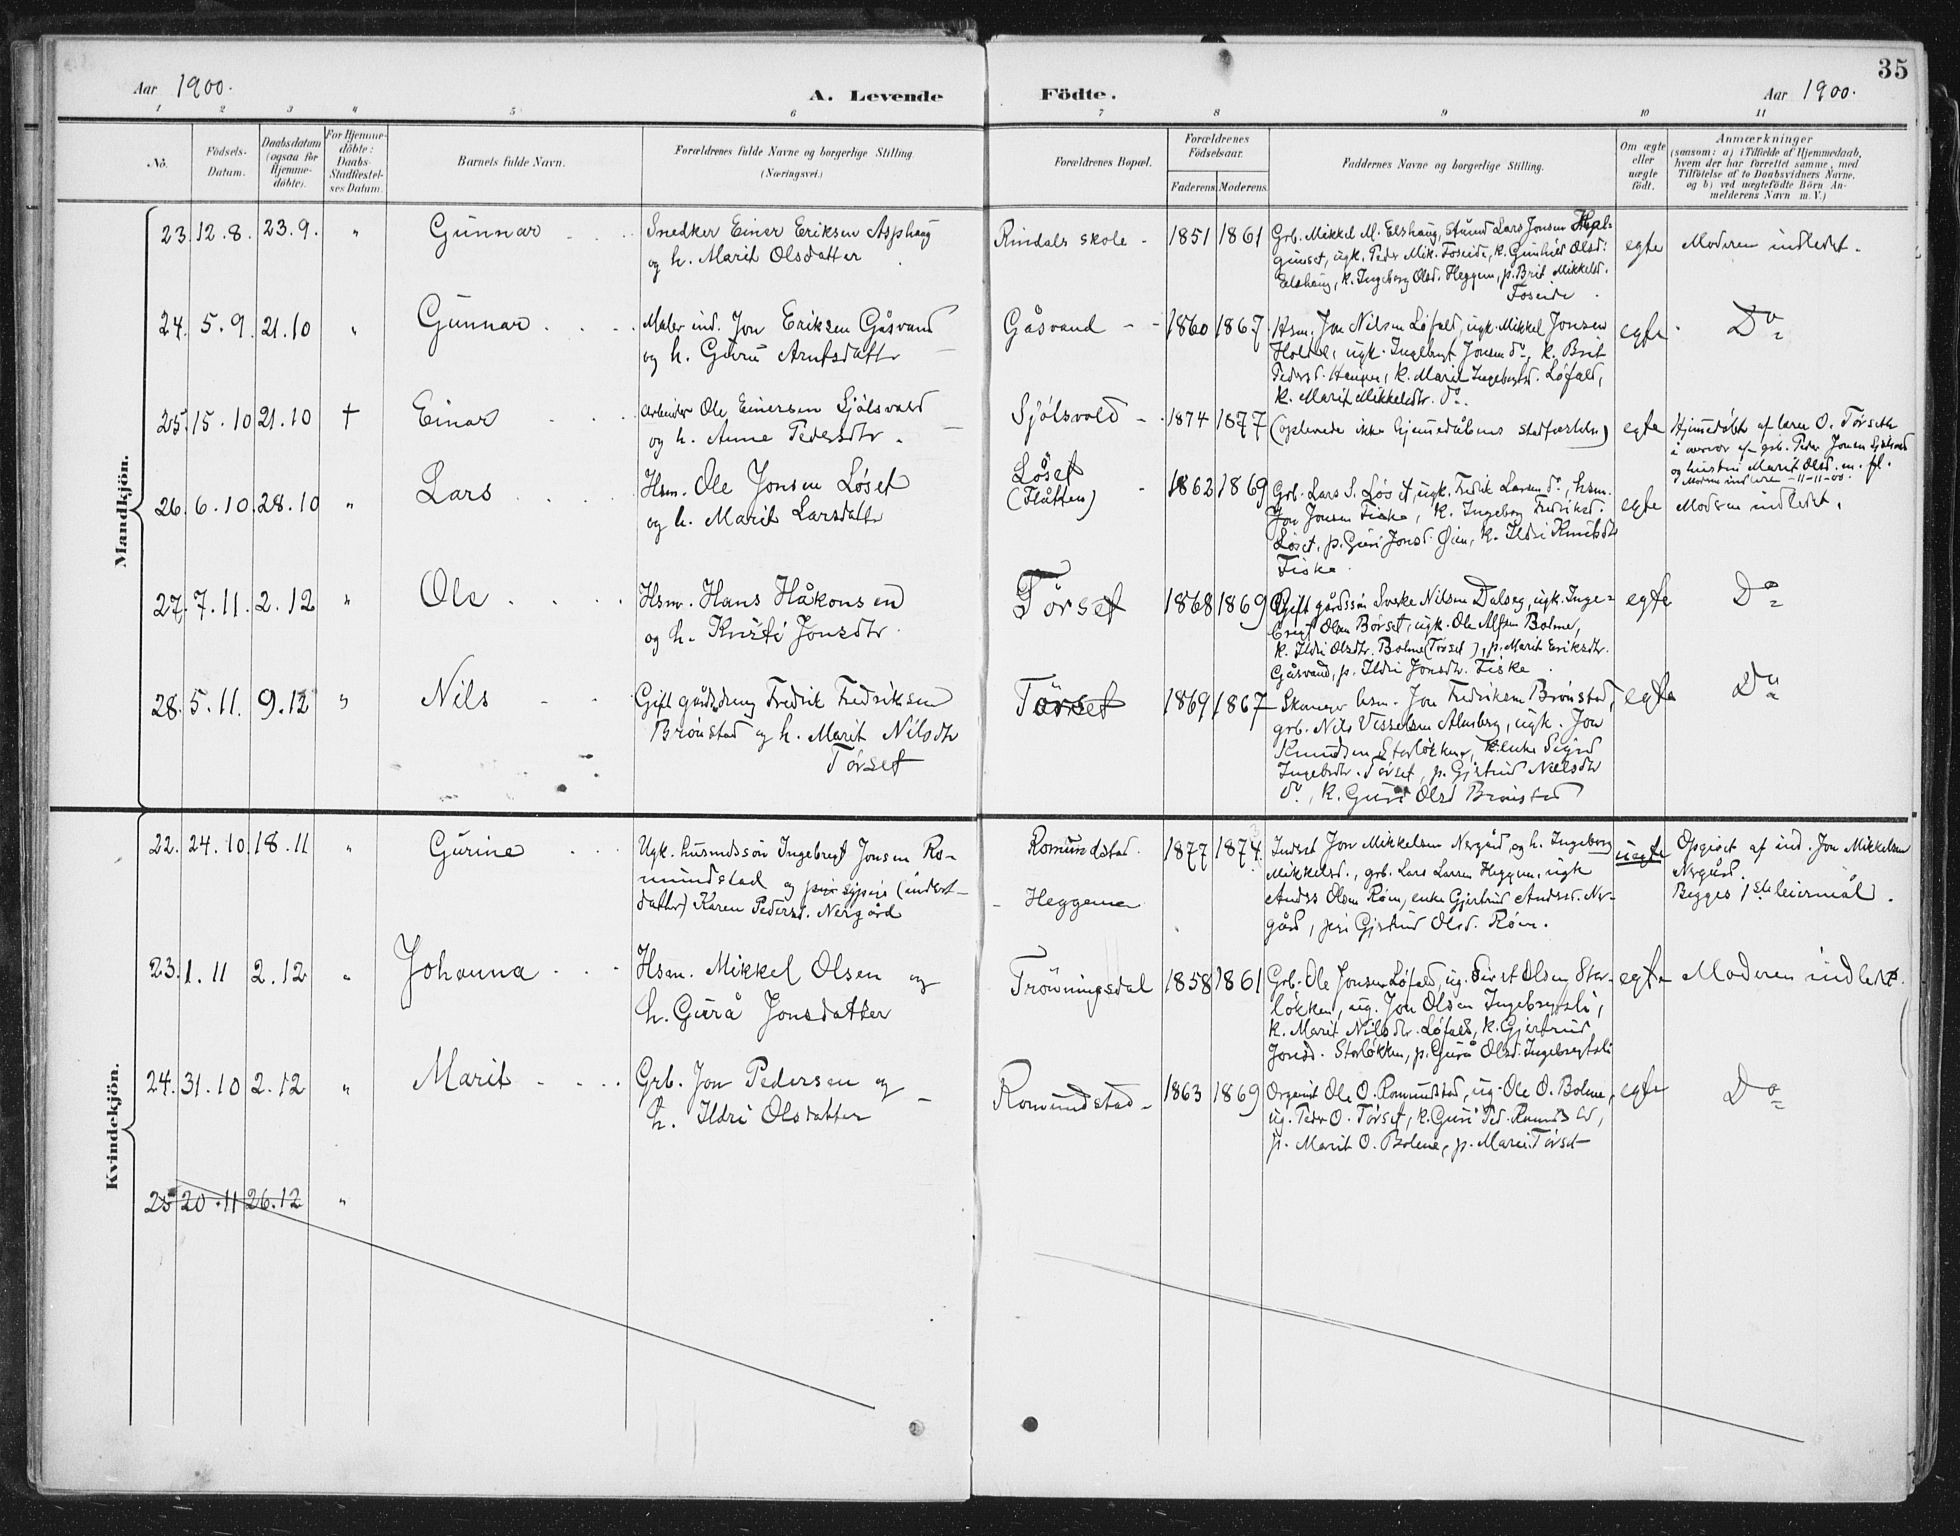 35
Aar 1900.
A. Levende Födte.
Aar 1900.
1 2 3 4 5 6 7 8 9 10 11
No.
Födsels-
Datum.
Daabsdatum
(ogsaa for
Hjemme-
döbte).
For Hjemme-
döbte:
Daabs-
Stadfæstel-
ses Datum.
Barnets fulde Navn.
Forældrenes fulde Navne og borgerlige Stilling
(Næringsvei.)
Forældrenes Bopæl.
Forældrenes
Födselsaar.
Faderens. Moderens.
Faddernes Navne og borgerlige Stilling.
Om ægte
eller
uægte
födt.
Anmærkninger
(saasom: a) i Tilfælde af Hjemmedaab,
hvem der har forrettet samme, med
Tilföielse af to Daabsvidners Navne,
og b) ved uægtefödte Börn An-
melderens Navn m. V.)
Mandkjön.
23. 12.8. 23.9. " Gunnar
Snedker Einer Eriksen Asphaug
og h. Marit Olsdatter
Rindals skole 1851 1861
Grb. Mikkel M. Elshaug, Lars Jonsen Hal-
gunset, ugk. Peder Mik. Foseide, k. Gunhild Olsd.
Elshaug, k. Ingeborg Olsd. Heggem, p. Brit Mikkelsd.
Foseide
egte Moderen indledet.
24. 5.9. 21.10 " Gunnar
Maler ind. Jon Eriksen Gåsvand
og h. Guru Arntsdattr
Gåsvand 1860 1867
Hsm. Jon Nilsen Løfald, ugk. Mikkel Jonsen
Holtet, ugk. Ingebrigt Jonsen do, k. Brit
Pedersd. Haugen, k. Marit Ingebrgtsd. Løfald,
k. Marit Mikkelsdtr. do.
egte Do
25. 15.10 21.10 † Einar
Arbeider Ole Einersen Sjölsvold
og h. Anne Pedersdtr.
Sjölsvold 1874 1877
(oplevede ikke hjemmedåbens stadfæstelse)
egte Hjemmedöbt af lærer O. Törseth
i overvær af grb. Peder Jonsen Sjölsvold
og hustru Marit Olsd. m. fl.
Moderen indledet 11-11-00.
26. 6.10. 28.10 " Lars
Hsm. Ole Jonsen Løset
og h. Marit Larsdattr
Løset
(Flåtten)
1862 1869
Grb. Lars S. Løset, ugk. Fredik Larsen do, hsm.
Jon Jonsen Fiske, k. Ingeborg Fredriksd.
Løset, p. Guri Jonsd. Øien, k. Ildri Knutsdtr
Fiske.
egte Moderen indledet.
27. 7.11. 2.12 " Ole
Hsm. Hans Håkonsen
og h. Kristi Jonsdtr.
Törset 1868 1869
Gift gårdssön Sivert Nilsen Dalseg, ugk. Inge-
brigt Olsen Börset, ugk. Ole Alfsen Bolme,
k. Ildri Olsdtr. Bolme (Törset), p. Marit Eriksdtr.
Gåsvand, p. Ildri Jonsdtr. Fiske.
egte Do
28. 5.11. 9.12 " Nils
Gift gårddreng Fredrik Fredriksen
Brönstad og h. Marit Nilsdtr
Törset
Törset 1869 1867
Skomager hsm. Jon Fredriksen Brönstad,
grb. Nils Vesselsen Almberg, ugk. Jon
Knudsen Storlökken, k. enke Sigrid
Ingebrdtr. Törset, p. Gjertrud Nielsdtr
do, k. Guri Olsd Brönstad
egte Do
Kvindekjön.
22. 24.10. 18.11 " Gurine
Ugk. husmdssön Ingebregt Jonsen Ro-
mundstad og syspige (inderst-
datter) Karen Pedersd. Nergård
Romundstad.
Heggem
1877 1874.
Inderst Jon Mikkelsen Nergård og h. Ingeborg
Mikkelsd., grb. Lars Larsen Heggem, ugk
Anders Olsen Röen, enke Gjertrud Andersd. Ner-
gård, pige Gjertrud Olsd. Röen.
uegte Opgivet af ind. Jon Mikkelsen
Nergård.
Begges 1ste leiermål.
23. 1.11 2.12 " Johanna
Hsm. Mikkel Olsen og
h. Gurå Jonsdatter
Trönningsdal 1858 1861
Grb. Ole Jonsen Løfald, ug. Sivert Olsen Stor-
lökken, ug. Jon Olsen Ingebregtsli,
k. Marit Nilsdtr. Løfald, k. Gjertrud
Jonsd. Storløkken, p. Gurå Olsd. Ingebregtsli
egte Moderen indledet.
24. 31.10 2.12 " Marit
Grb. Jon Pedersen og
h. Ildri Olsdatter
Romundstad 1863 1869
Organist Ole O. Romundstad, ug. Ole O. Bolme,
ug. Peder O. Törset, k. Guri Ped. Romundstad,
p. Marit O. Bolme, p. Marit Törset
egte Do
25 20.11 26.12 "